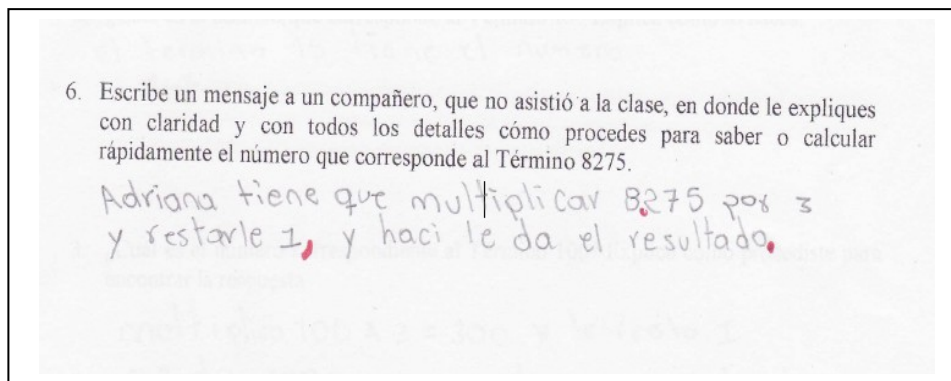 6. Escribe un mensaje a un compañero, que no asistió a la clase, en donde le expliques
con claridad y con todos los detalles cómo procedes para saber o calcular
rápidamente el número que corresponde al Término 8275.
Adriana tiene que multiplicar 8275 por 3
y restarle 1, y haci le da el resultado.